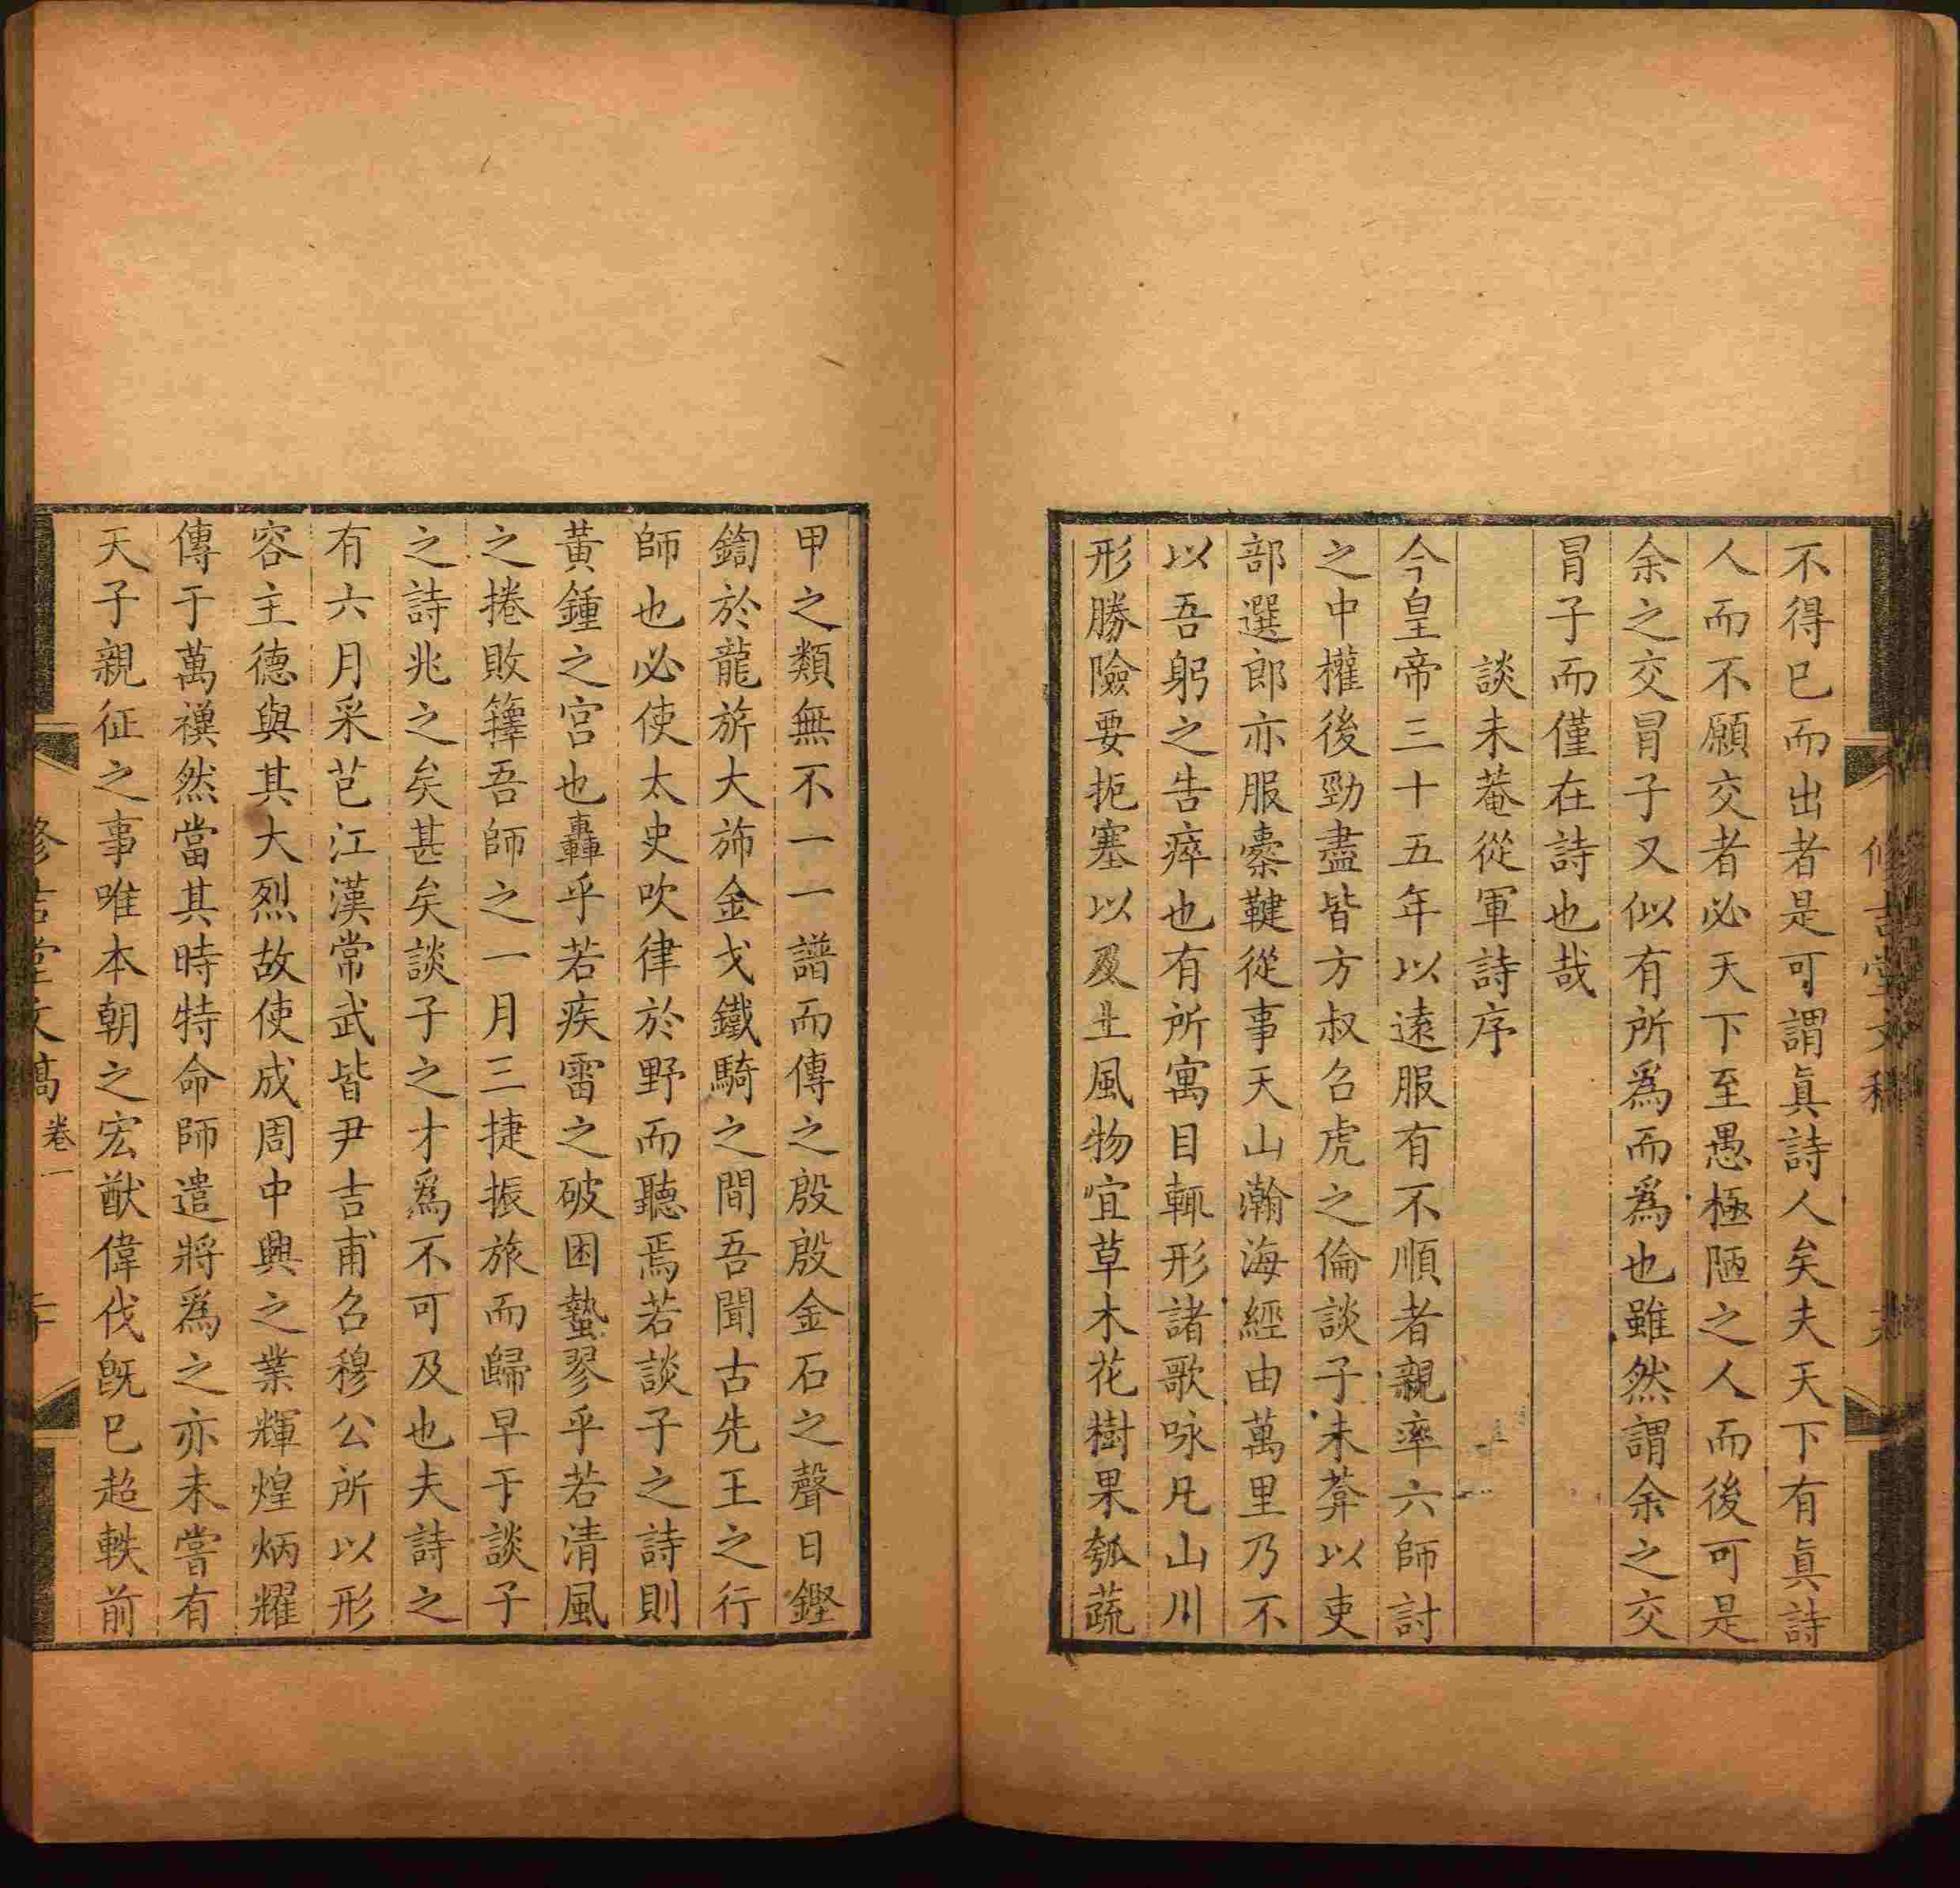 不得已而出者是可謂眞詩人矣夫天下有眞詩
人而不願交者必天下至愚極陋之人而後可是
余之交冒子又似有所爲而爲也雖然謂余之交
冒子而僅在詩也哉
談未菴從軍詩序
今皇帝三十五年以遠服有不順者親率六師討
之中權後勁盡皆方叔召虎之倫談子未菴以吏
部選郎亦服櫜鞬從事天山瀚海經由萬里乃不
以吾躬之告瘁也有所寓目輒形諸歌咏凡山川
形勝險要扼塞以及土風物宜草木花樹果瓠蔬
甲之類無不一一譜而傳之殷殷金石之聲日鏗
鍧於龍旂大斾金戈鐵騎之間吾聞古先王之行
師也必使太史吹律於野而聽焉若談子之詩則
黃鍾之宮也轟乎若疾雷之破困蟄翏乎若清風
之捲敗籜吾師之一月三捷振旅而歸早于談子
之詩兆之矣甚矣談子之才爲不可及也夫詩之
有六月采芑江漢常武皆尹吉甫召穆公所以形
容主德與其大烈故使成周中興之業輝煌炳耀
傳于萬禩然當其時特命師遣將爲之亦未嘗有
天子親征之事唯本朝之宏猷偉伐旣已超軼前
修吉堂文稿 卷一